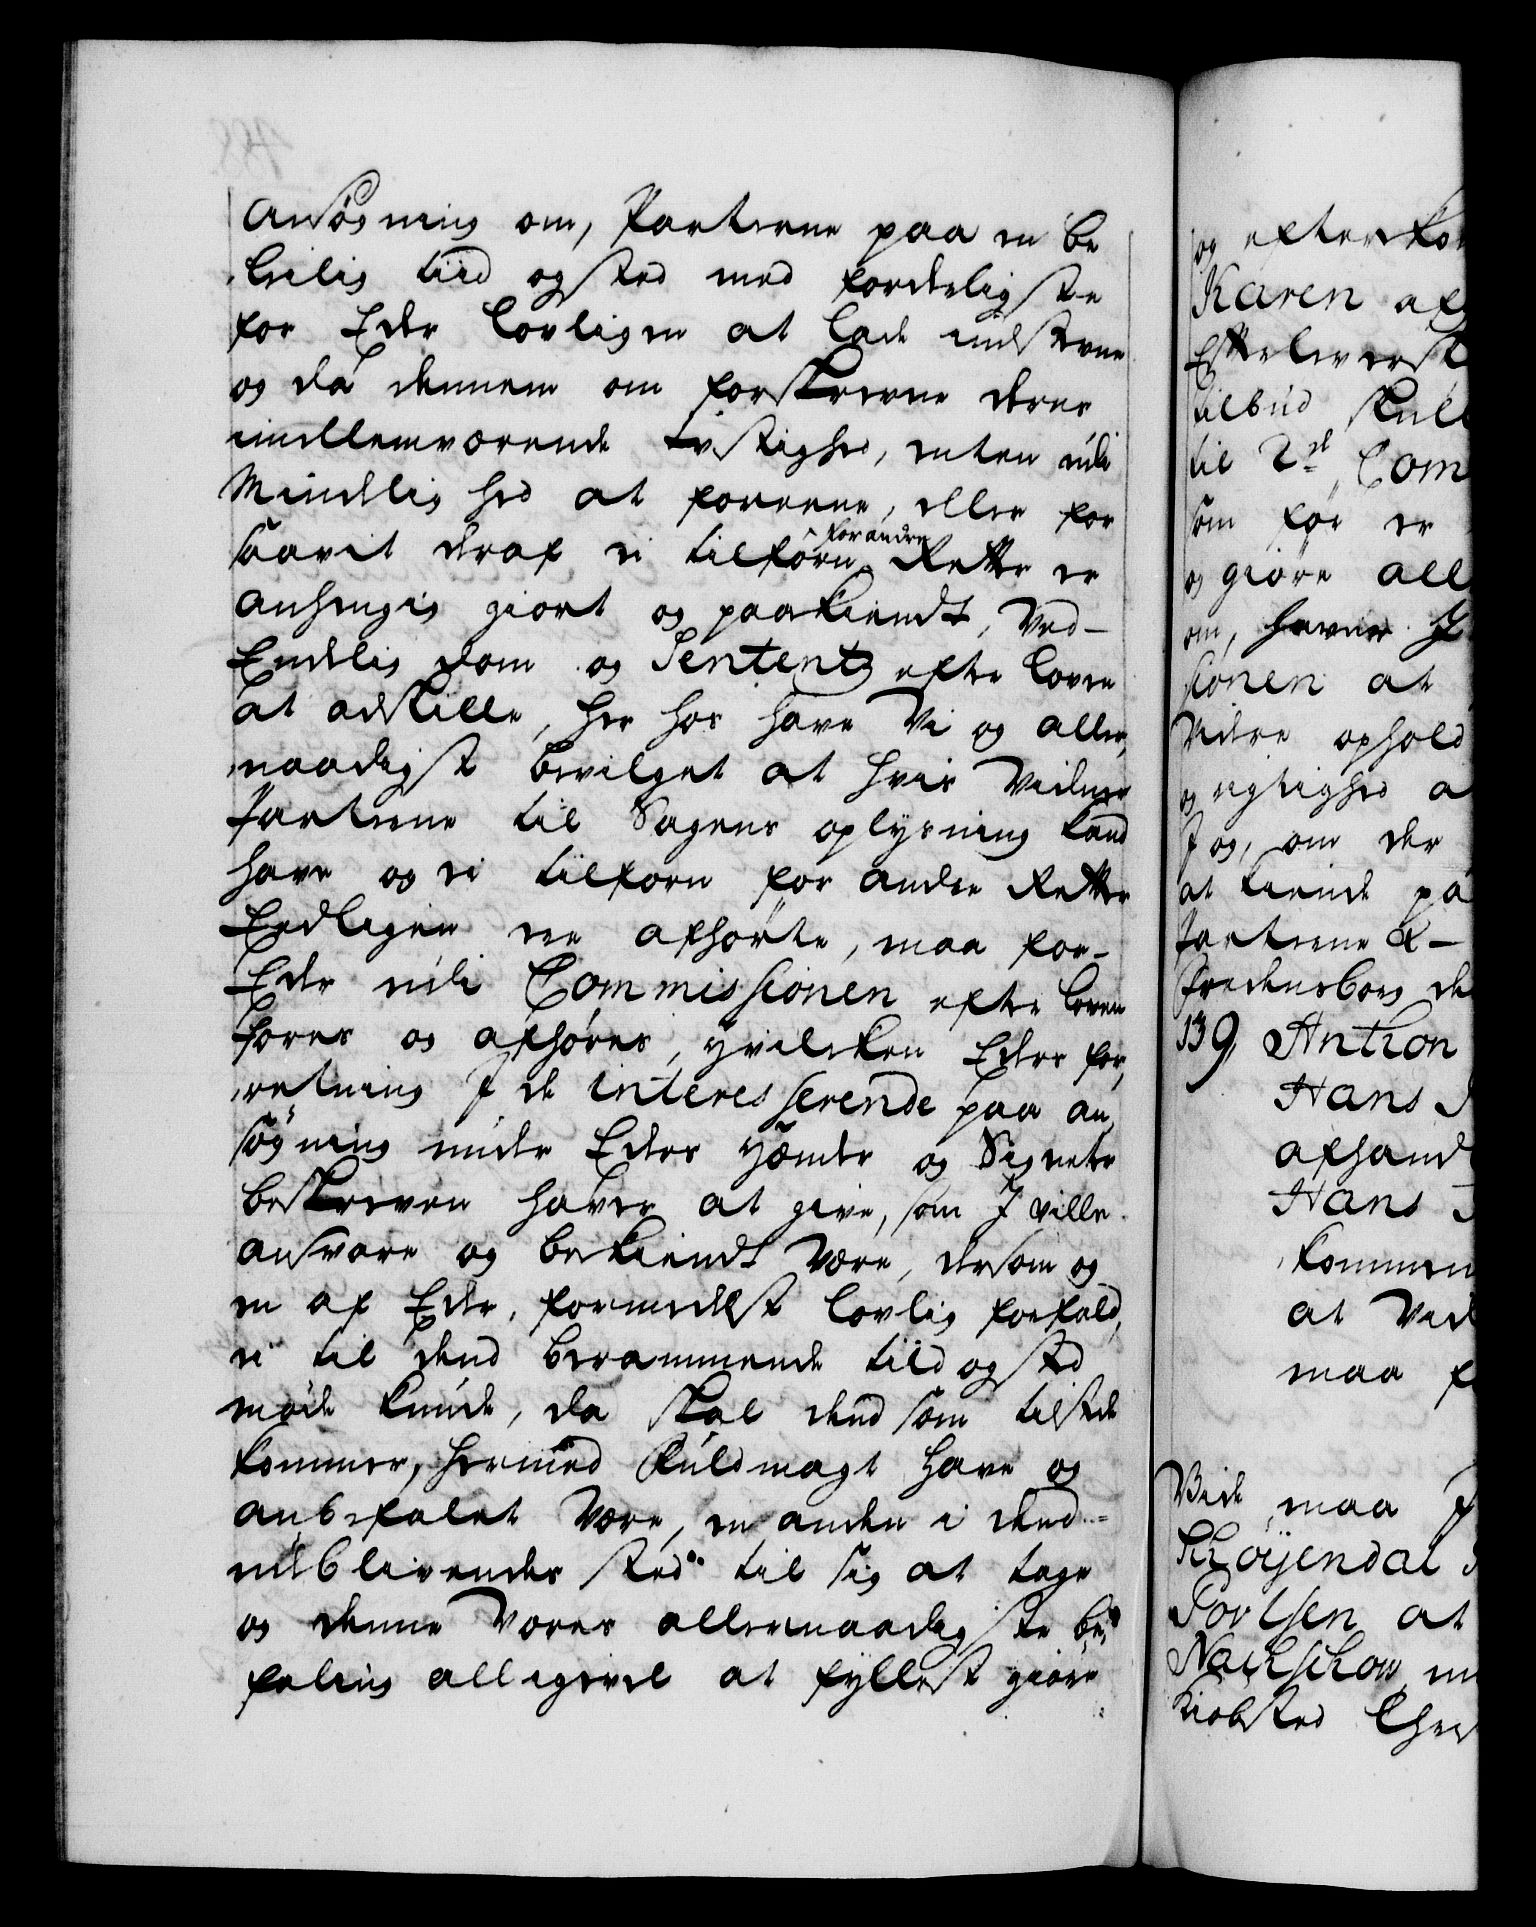 ansøgning om, Parterne paa en be
leilig tiid og sted med forderligste
for Eder lovligen at lade indstevne
og da dennem om forskrevne deres
imellemværende tvistighed, enten udi
Mindelighed at foreene, eller for
saavit deraf ei tilforn for andre Retter er
anhengig giort og paakiendt, ved
Endelig dom og Sententz efter loven
at adskille, her hos have Vi og aller,
naadigst bevilget at hvis Vidner
Parterne til Sagens oplysning kand
have og ei tilforn for andre Retter
Eedligen ere afhørte, maa for-
Eder udi Commissionen efter loven
føres og afhøres, hvilcken Eders for,
retning I de interesserende paa an,
søgning under Eders Hænder og Signeter
beskreven haver at give, som I ville
ansvare og bekiendt være, dersom og
en af Eder, formedelst lovlig forfald,
ei til dend berammende tiid og sted
møde kunde, da skal dend som tilstede
kommer, hermed Fuldmagt have og
anbefalet være, en anden i dend
udblivendes sted til sig at tage
og denne Vores allernaadigste be,
faling alligevel at fyllest giøre
og efterkom
Karen af
Efterleverske
tilbud skul
til 2de Com
som før er
og giøre all
om, haver I
sionen at
Videre ophold
og rigtighed a
I og, om der
at kiende pa
Parterne &-
Fredensborg de
139 Anthon
Hans
afhand
Hans
kommen
at Ved
maa f
Vide maa
Krøyendal
Poulsen at
Nachschow
Kiøbsted Chri